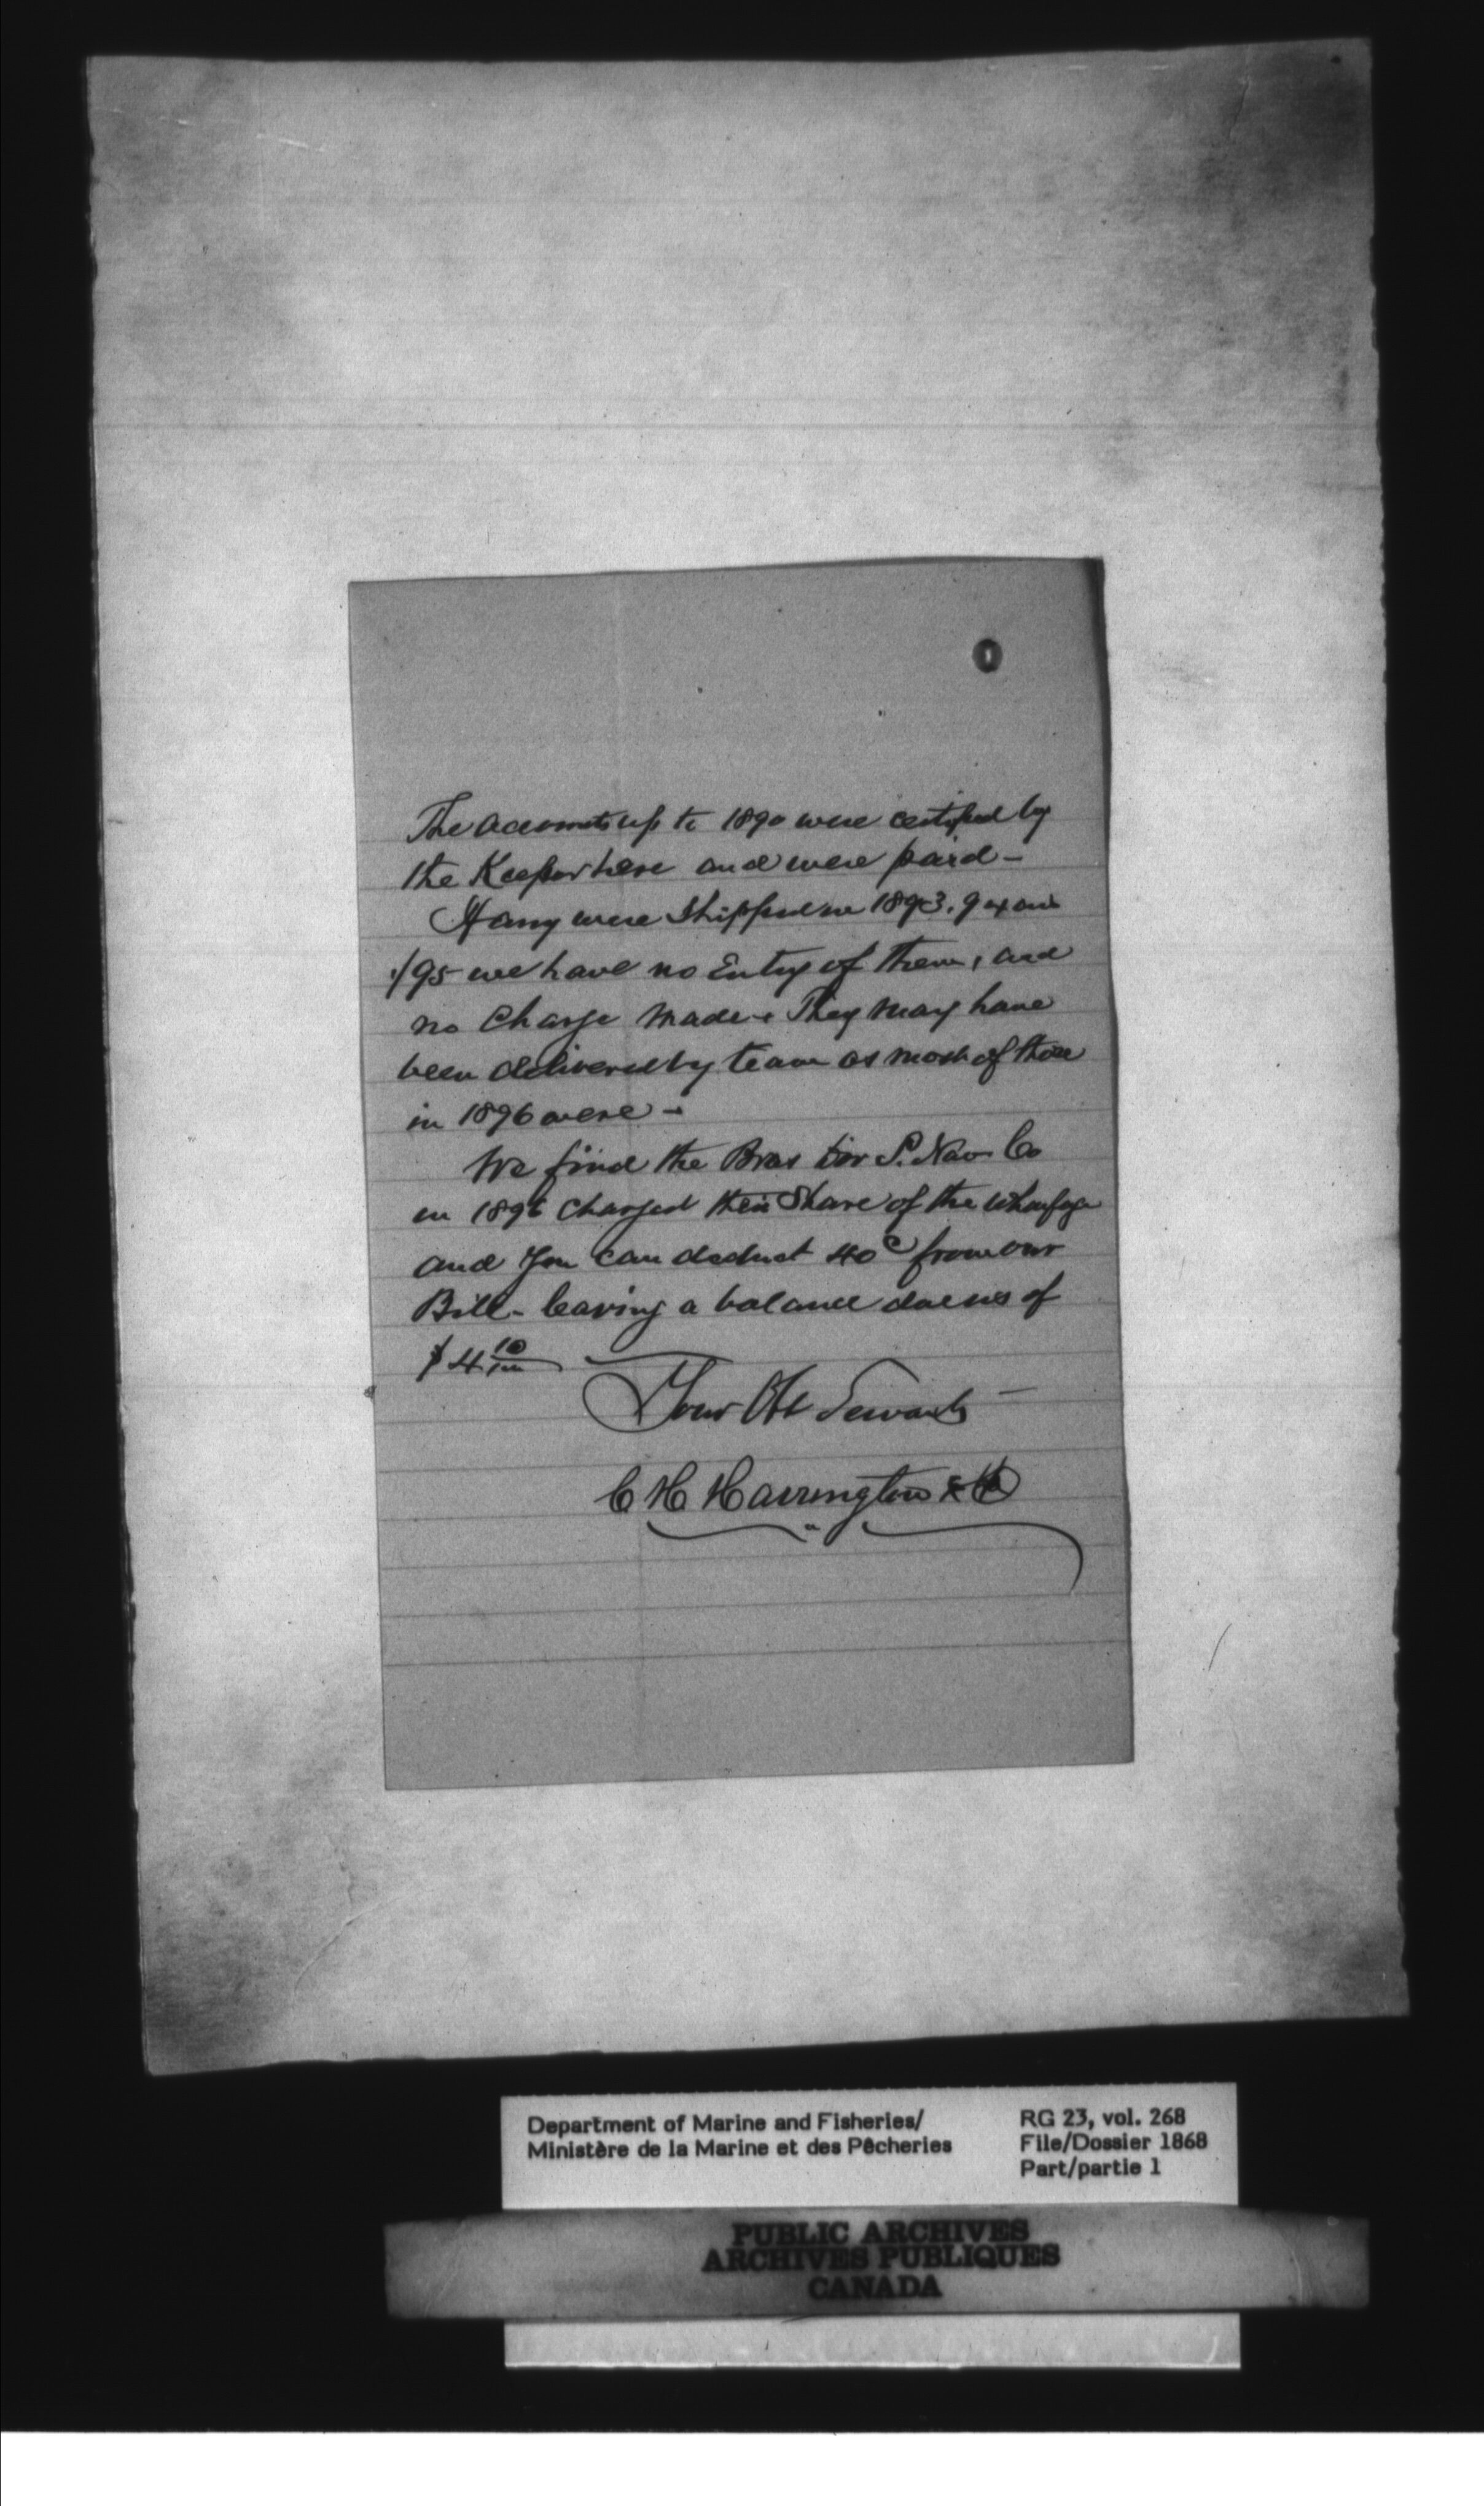 The accounts up to 1890 were certified by
the Keeper here and were paid -
If any were shipped in 1893. 94 and
/95 we have no Entry of them, and
no charge made. They may have
been delivered by team as most of those
in 1896 were -
We find the Bras d'or S. Nav. Co
in 1896 charged their share of the wharfage
and you can deduct 40c from our
Bill - leaving a balance due us of
$4 10/100
Your Obt Servants
C H Harrington & Co
Department of Marine and Fisheries/
Ministère de la Marine et des Pêcheries
RG 23, vol. 268
File/Dossier 1868
Part/partie 1
PUBLIC ARCHIVES
ARCHIVES PUBLIQUES
CANADA